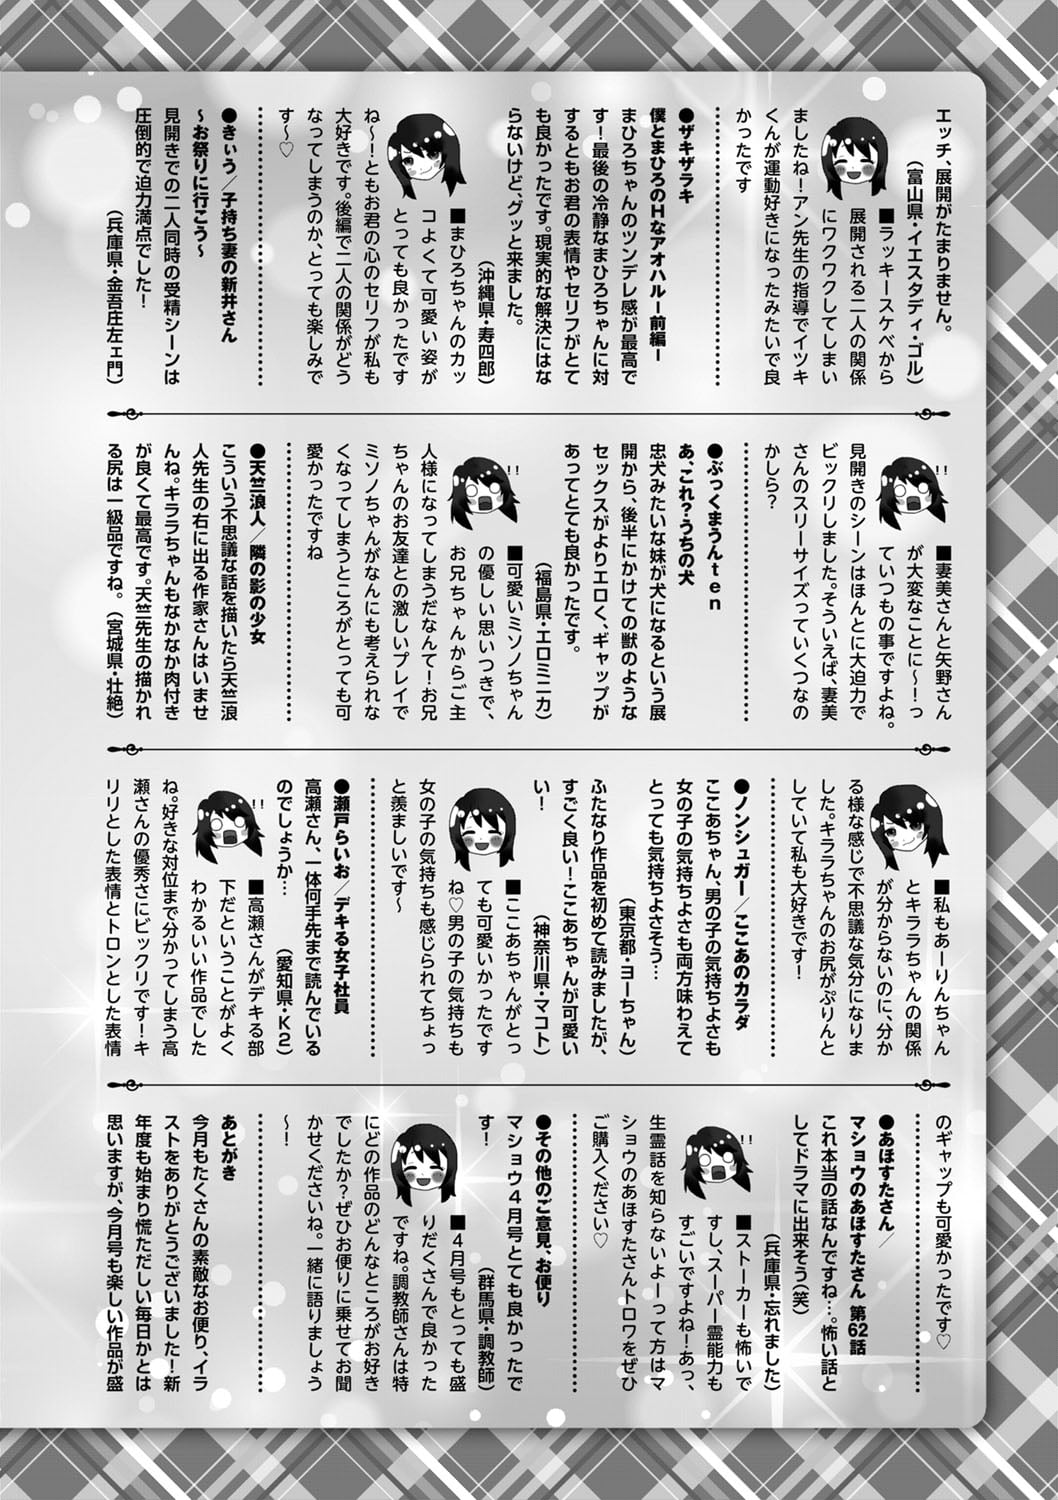 エッチ、展開がたまりません。
(富山県・イエスタデイ・ゴル)
■ラッキースケベから
展開される二人の関係
にワクワクしてしまい
ましたね！アン先生の指導でイツキ
くんが運動好きになったみたいで良
かったです
●ザキザラキ
僕とまひろのＨなアオハルー前編ー
まひろちゃんのツンデレ感が最高で
す！最後の冷静なまひろちゃんに対
するともお君の表情やセリフがとて
も良かったです。現実的な解決にはな
らないけど、グッと来ました。
(沖縄県・寿四郎)
■まひろちゃんのカッ
コよくて可愛い姿が
とっても良かったです
ね～！ともお君の心のセリフが私も
大好きです。後編で二人の関係がどう
なってしまうのか、とっても楽しみで
す～♡
●きぃう／子持ち妻の新井さん
～お祭りに行こう～
見開きでの二人同時の受精シーンは
圧倒的で迫力満点でした！
(兵庫県・金吾庄左ェ門)
■妻美さんと矢野さん
が大変なことに～！っ
ていつもの事ですよね。
見開きのシーンはほんとに大迫力で
ビックリしました。そういえば、妻美
さんのスリーサイズっていくつなの
かしら？
●ぶっくまうんｔｅｎ
あ、これ？うちの犬
忠犬みたいな妹が犬になるという展
開から、後半にかけての獣のような
セックスがよりエロく、ギャップが
あってとても良かったです。
(福島県・エロミニカ)
■可愛いミソノちゃん
の優しい思いつきで、
お兄ちゃんからご主
人様になってしまうだなんて！お兄
ちゃんのお友達との激しいプレイで
ミソノちゃんがなんにも考えられな
くなってしまうところがとっても可
愛かったですね
●天竺浪人／隣の影の少女
こういう不思議な話を描いたら天竺浪
人先生の右に出る作家さんはいませ
んね。キララちゃんもなかなか肉付き
が良くて最高です。天竺先生の描かれ
る尻は一級品ですね。(宮城県・壮絶)
■私もあーりんちゃん
とキララちゃんの関係
が分からないのに、分か
る様な感じで不思議な気分になりま
した。キララちゃんのお尻がぷりんと
していて私も大好きです！
●ノンシュガー／ここあのカラダ
ここあちゃん、男の子の気持ちよさも
女の子の気持ちよさも両方味わえて
とっても気持ちよさそう…
(東京都・ヨーちゃん)
ふたなり作品を初めて読みましたが、
すごく良い！ここあちゃんが可愛い
い！
(神奈川県・マコト)
■ここあちゃんがとっ
ても可愛いかったです
ね♡男の子の気持ちも
女の子の気持ちも感じられてちょっ
と羨ましいです～
●瀬戸らいお／デキる女子社員
高瀬さん、一体何手先まで読んでいる
のでしょうか…
(愛知県・Ｋ２)
■高瀬さんがデキる部
下だということがよく
わかるいい作品でした
ね。好きな対位まで分かってしまう高
瀬さんの優秀さにビックリです！キ
リリとした表情とトロンとした表情
のギャップも可愛かったです♡
●あほすたさん／
マショウのあほすたさん 第62話
これ本当の話なんですね…。怖い話と
してドラマに出来そう(笑)
(兵庫県・忘れました)
■ストーカーも怖いで
すし、スーパー霊能力も
すごいですよね！あっ、
生霊話を知らないよーって方はマ
ショウのあほすたさんトロワをぜひ
ご購入ください♡
●その他のご意見、お便り
マショウ４月号とても良かったで
す！
(群馬県・調教師)
■４月号もとっても盛
りだくさんで良かった
ですね。調教師さんは特
にどの作品のどんなところがお好き
でしたか？ぜひお便りに乗せてお聞
かせくださいね。一緒に語りましょう
～！
あとがき
今月もたくさんの素敵なお便り、イラ
ストをありがとうございました！新
年度も始まり慌ただしい毎日かとは
思いますが、今月号も楽しい作品が盛